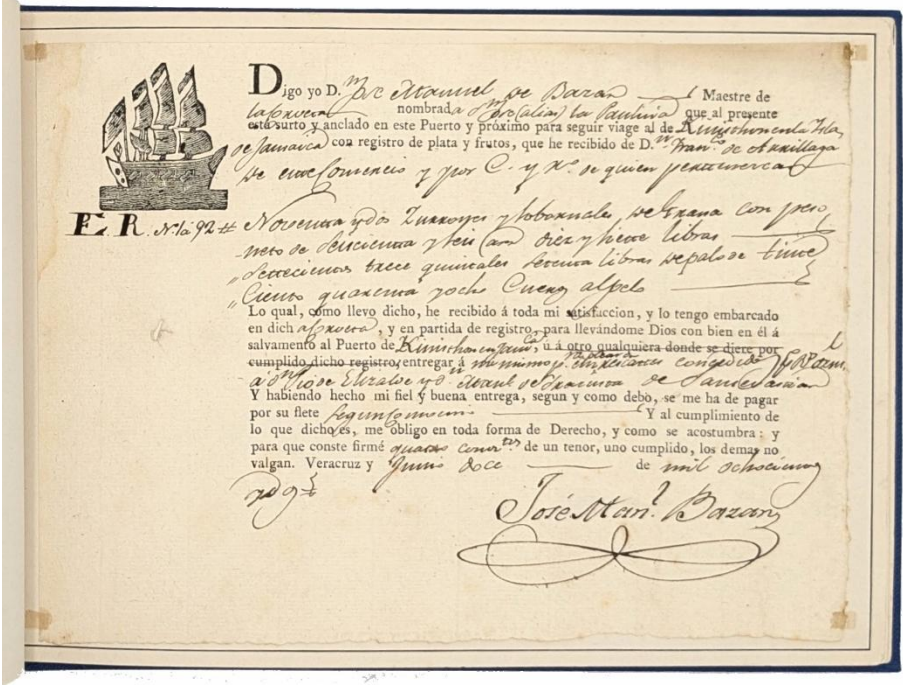 Digo yo D.n Jph Manuel de Bazan Maestre de
la Goleta nombrada Sn Jph (alias) la Paulina que al presente
está surto y anclado en este Puerto y próximo para seguir viage al de Kinishon en la Isla
de Jamaica con registro de plata y frutos, que he recibido de D.n Fran.co de Arrillaga
de este Comercio y por C. y Ro. de quien pertenezca
E. R. N. 1 á 92 Noventa y dos Zurrones y de Grana con peso
neto de y seis diez y siete libras
Setecientos trece quintales setenta libras de palo de tinte
Ciento quarenta y ocho Cueros al pelo
Lo qual, como llevo dicho, he recibido á toda mi satisfaccion, y lo tengo embarcado
en dicha , y en partida de registro, para llevándome Dios con bien en él á
salvamento al Puerto de Kinishon en Jamca, ú á otro qualquiera donde se diere por
cumplido dicho registro, entregar á
á Dn Pio de Elizalde y Dn Manl de
Y habiendo hecho mi fiel y buena entrega, segun y como debo, se me ha de pagar
por su flete Segun Y al cumplimiento de
lo que dicho es, me obligo en toda forma de Derecho, y como se acostumbra: y
para que conste firmé quatro de un tenor, uno cumplido, los demas no
valgan. Veracruz y Junio doce de mil ochocientos
José Man.l Bazan